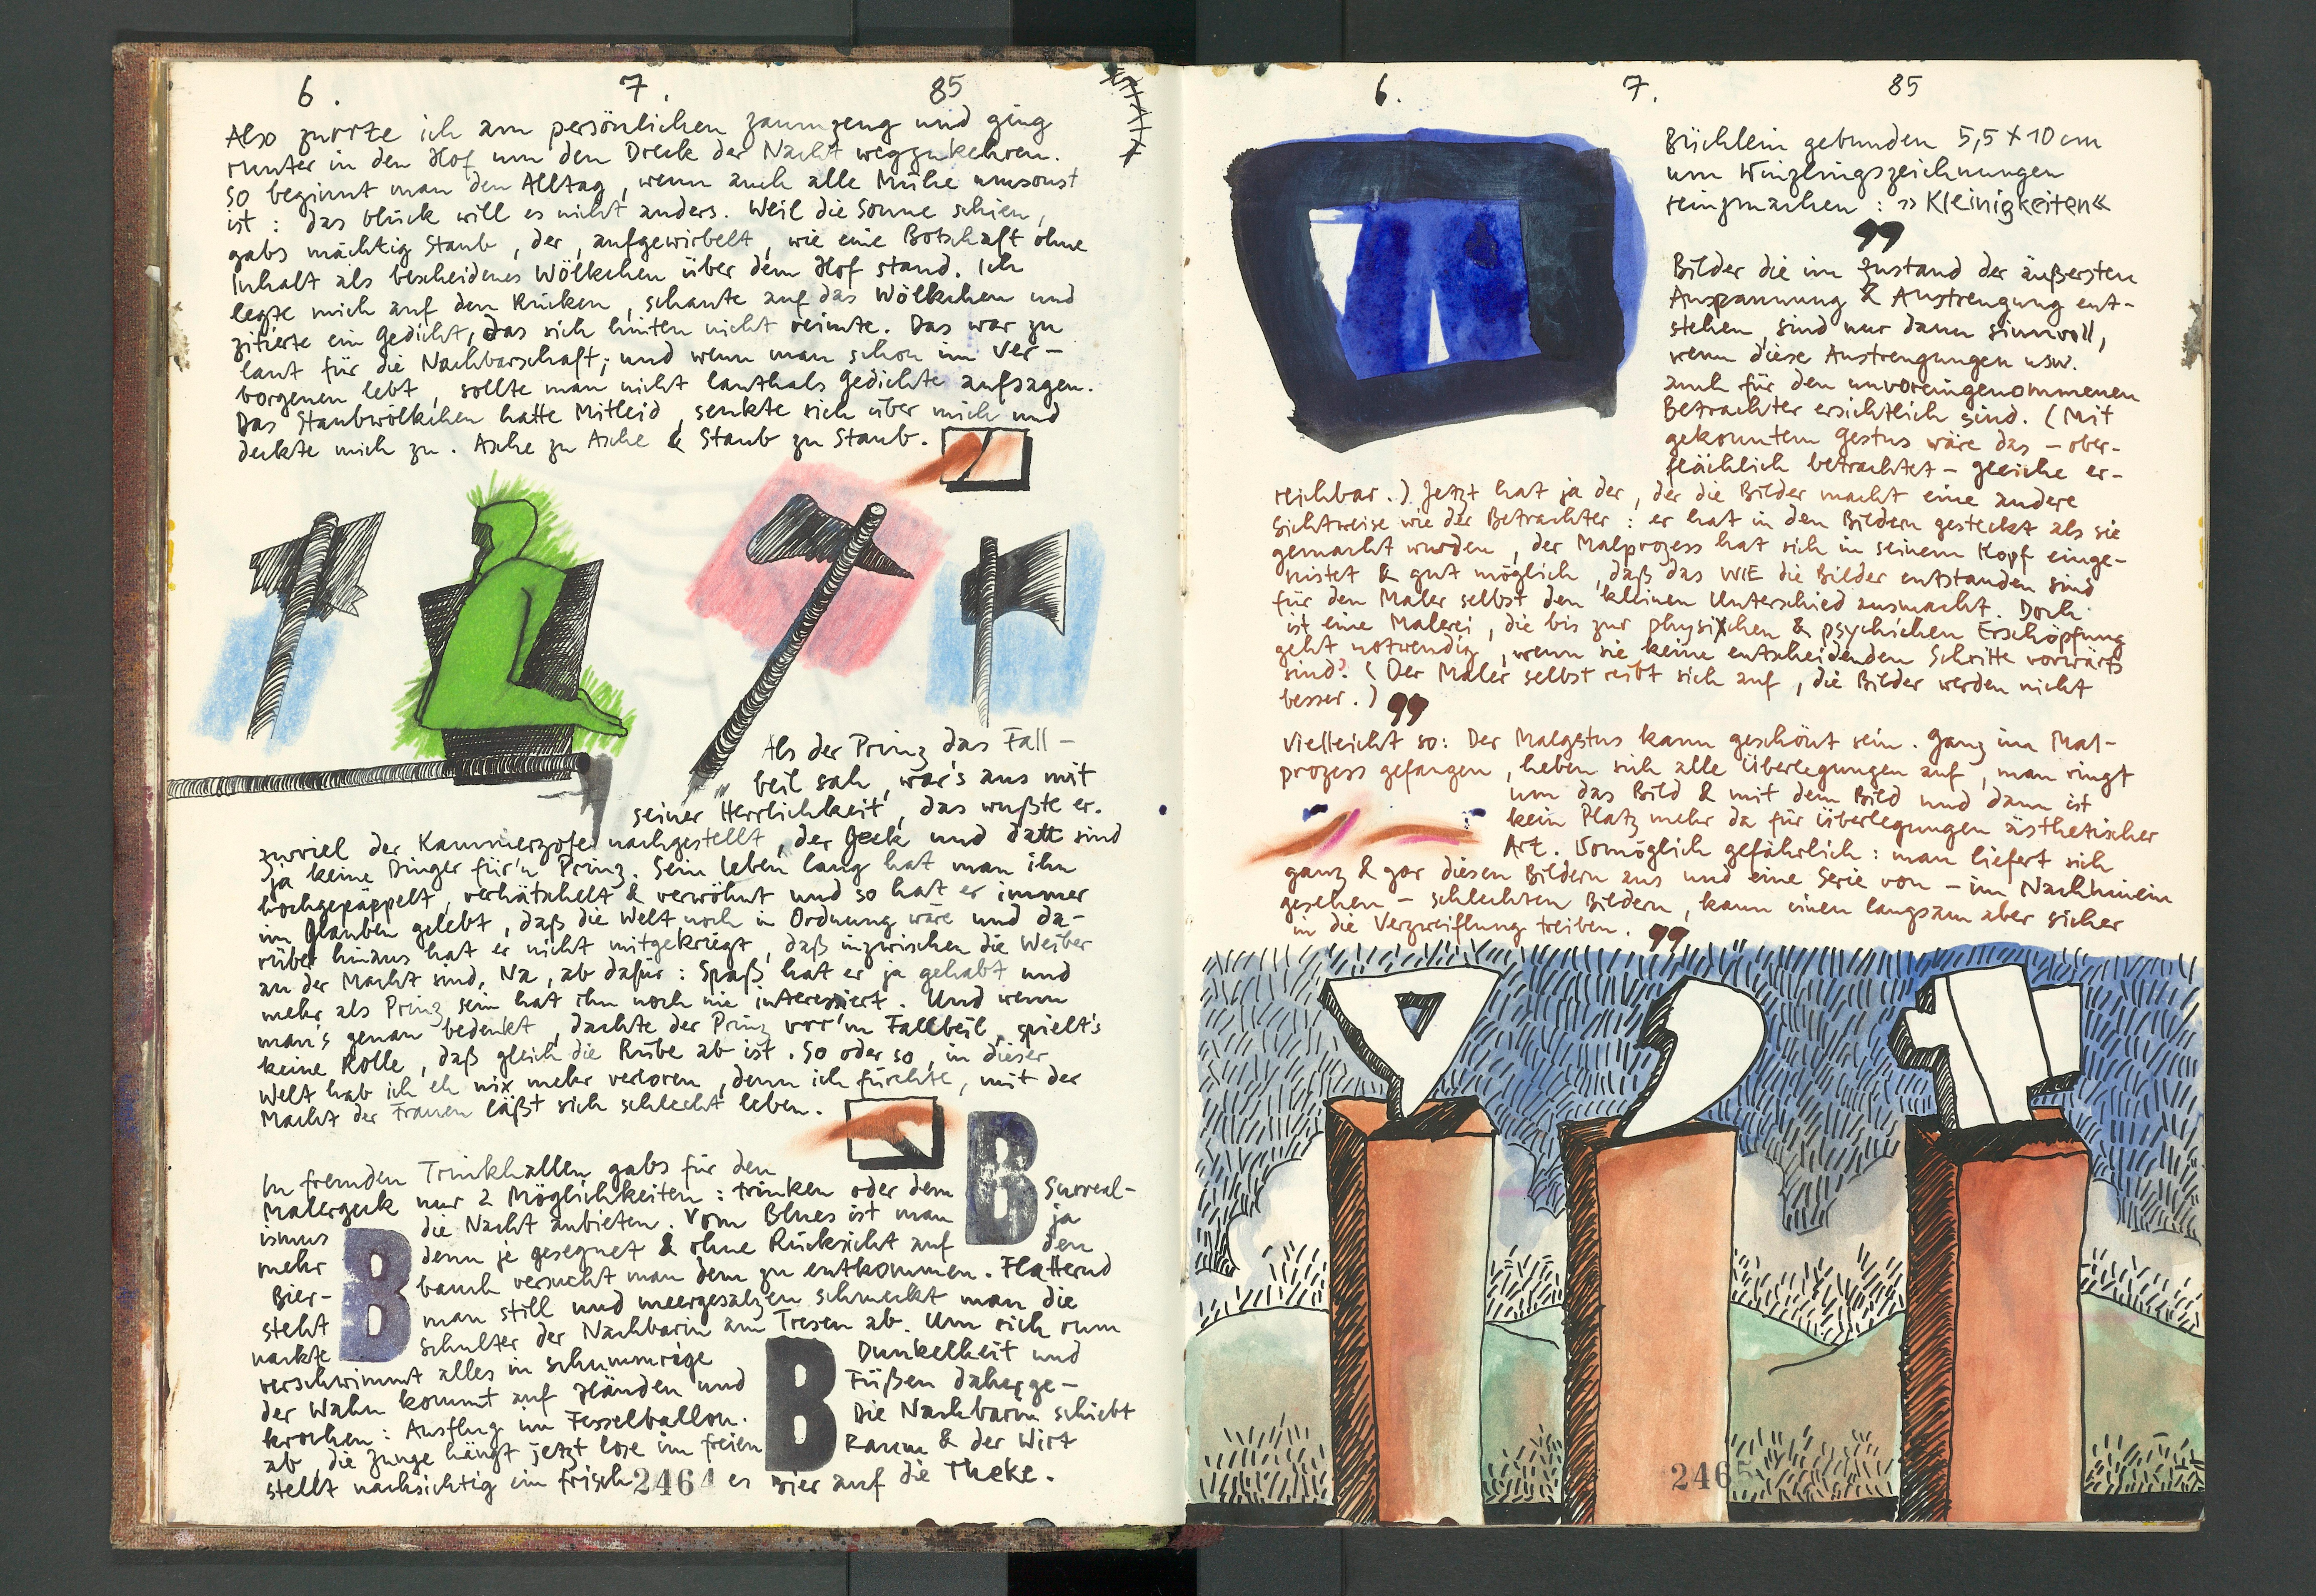 6. 7. 85
Also zurrte ich am persönlichen Zaumzeug und ging
runter in den Hof um den Dreck der Nacht wegzukehren.
So beginnt man den Alltag, wenn auch alle Mühe umsonst
ist: das Glück will es nicht anders. Weil die Sonne schien,
gabs mächtig Staub, der, aufgewirbelt, wie eine Botschaft ohne
Inhalt als bescheidenes Wölkchen über dem Hof stand. Ich
legte mich auf den Rücken, schaute auf das Wölkchen und
zitierte ein Gedicht, das sich hinten nicht reimte. Das war zu
laut für die Nachbarschaft; und wenn man schon im Ver-
borgenen lebt, sollte man nicht lauthals Gedichte aufsagen.
Das Staubwölkchen hatte Mitleid, senkte sich über mich und
deckte mich zu. Asche zu Asche & Staub zu Staub.
Als der Prinz das Fall-
beil sah, war's aus mit
seiner Herrlichkeit, das wußte er.
Zuviel der Kammerzofe nachgestellt, der Geck und datt sind
ja keine Dinger für'n Prinz. Sein Leben lang hat man ihn
hochgepäppelt, verhätschelt & verwöhnt und so hat er immer
im Glauben gelebt, daß die Welt noch in Ordnung wäre und da-
rüber hinaus hat er nicht mitgekriegt, daß inzwischen die Weiber
an der Macht sind. Na, ab dafür: Spaß hat er ja gehabt und
mehr als Prinz sein hat ihn noch nie interessiert. Und wenn
man's genau bedenkt, dachte der Prinz vor'm Fallbeil, spielt's
keine Rolle, daß gleich die Rübe ab ist. So oder so, in dieser
Welt hab ich eh nix mehr verloren, denn ich fürchte, mit der
Macht der Frauen läßt sich schlecht leben.
In fremden Trinkhallen gabs für den
Malergeck nur 2 Möglichkeiten: trinken oder dem B Surreal-
ismus die Nacht anbieten. Vom Blues ist man ja
mehr B denn je gesegnet & ohne Rücksicht auf den
Bier- bauch versucht man dem zu entkommen. Flatternd
steht man still und meergesalzen schmeckt man die
nackte Schulter der Nachbarin am Tresen ab. Um sich rum
verschwimmt alles in schummrige B Dunkelheit und
der Wahn kommt auf Händen und Füßen daherge-
krochen: Ausflug im Fesselballon. Die Nachbarin schiebt
ab, die Zunge hängt jetzt lose im freien Raum & der Wirt
stellt nachsichtig ein frisch es Bier auf die Theke.
2464
6. 7. 85
Büchlein gebunden 5,5 x 10 cm
um Winzlingszeichnungen
reinzmachen: »Kleinigkeiten«
99
Bilder die im Zustand der äußersten
Anspannung & Anstrengung ent-
stehen, sind nur dann sinnvoll,
wenn diese Anstrengungen usw.
auch für den unvoreingenommenen
Betrachter ersichtlich sind. (Mit
gekonntem Gestus wäre das – ober-
flächlich betrachtet – gleiche er-
reichbar.) Jetzt hat ja der, der die Bilder macht eine andere
Sichtweise wie der Betrachter: er hat in den Bildern gesteckt als sie
gemacht wurden, der Malprozess hat sich in seinem Kopf einge-
nistet & gut möglich, daß das WIE die Bilder entstanden sind
für den Maler selbst den kleinen Unterschied ausmacht. Doch
ist eine Malerei, die bis zur physischen & psychichen Erschöpfung
geht notwendig, wenn sie keine entscheidenden Schritte vorwärts
sind? (Der Maler selbst reibt sich auf, die Bilder werden nicht
besser.) 99
Vielleicht so: Der Malgestus kann geschönt sein. Ganz im Mal-
prozess gefangen, heben sich alle Überlegungen auf, man ringt
um das Bild & mit dem Bild und dann ist
kein Platz mehr da für Überlegungen ästhetischer
Art. Womöglich gefährlich: man liefert sich
ganz & gar diesen Bildern aus und eine Serie von – im Nachhinein
gesehen – schlechten Bildern, kann einen langsam aber sicher
in die Verzweiflung treiben. 99
2465